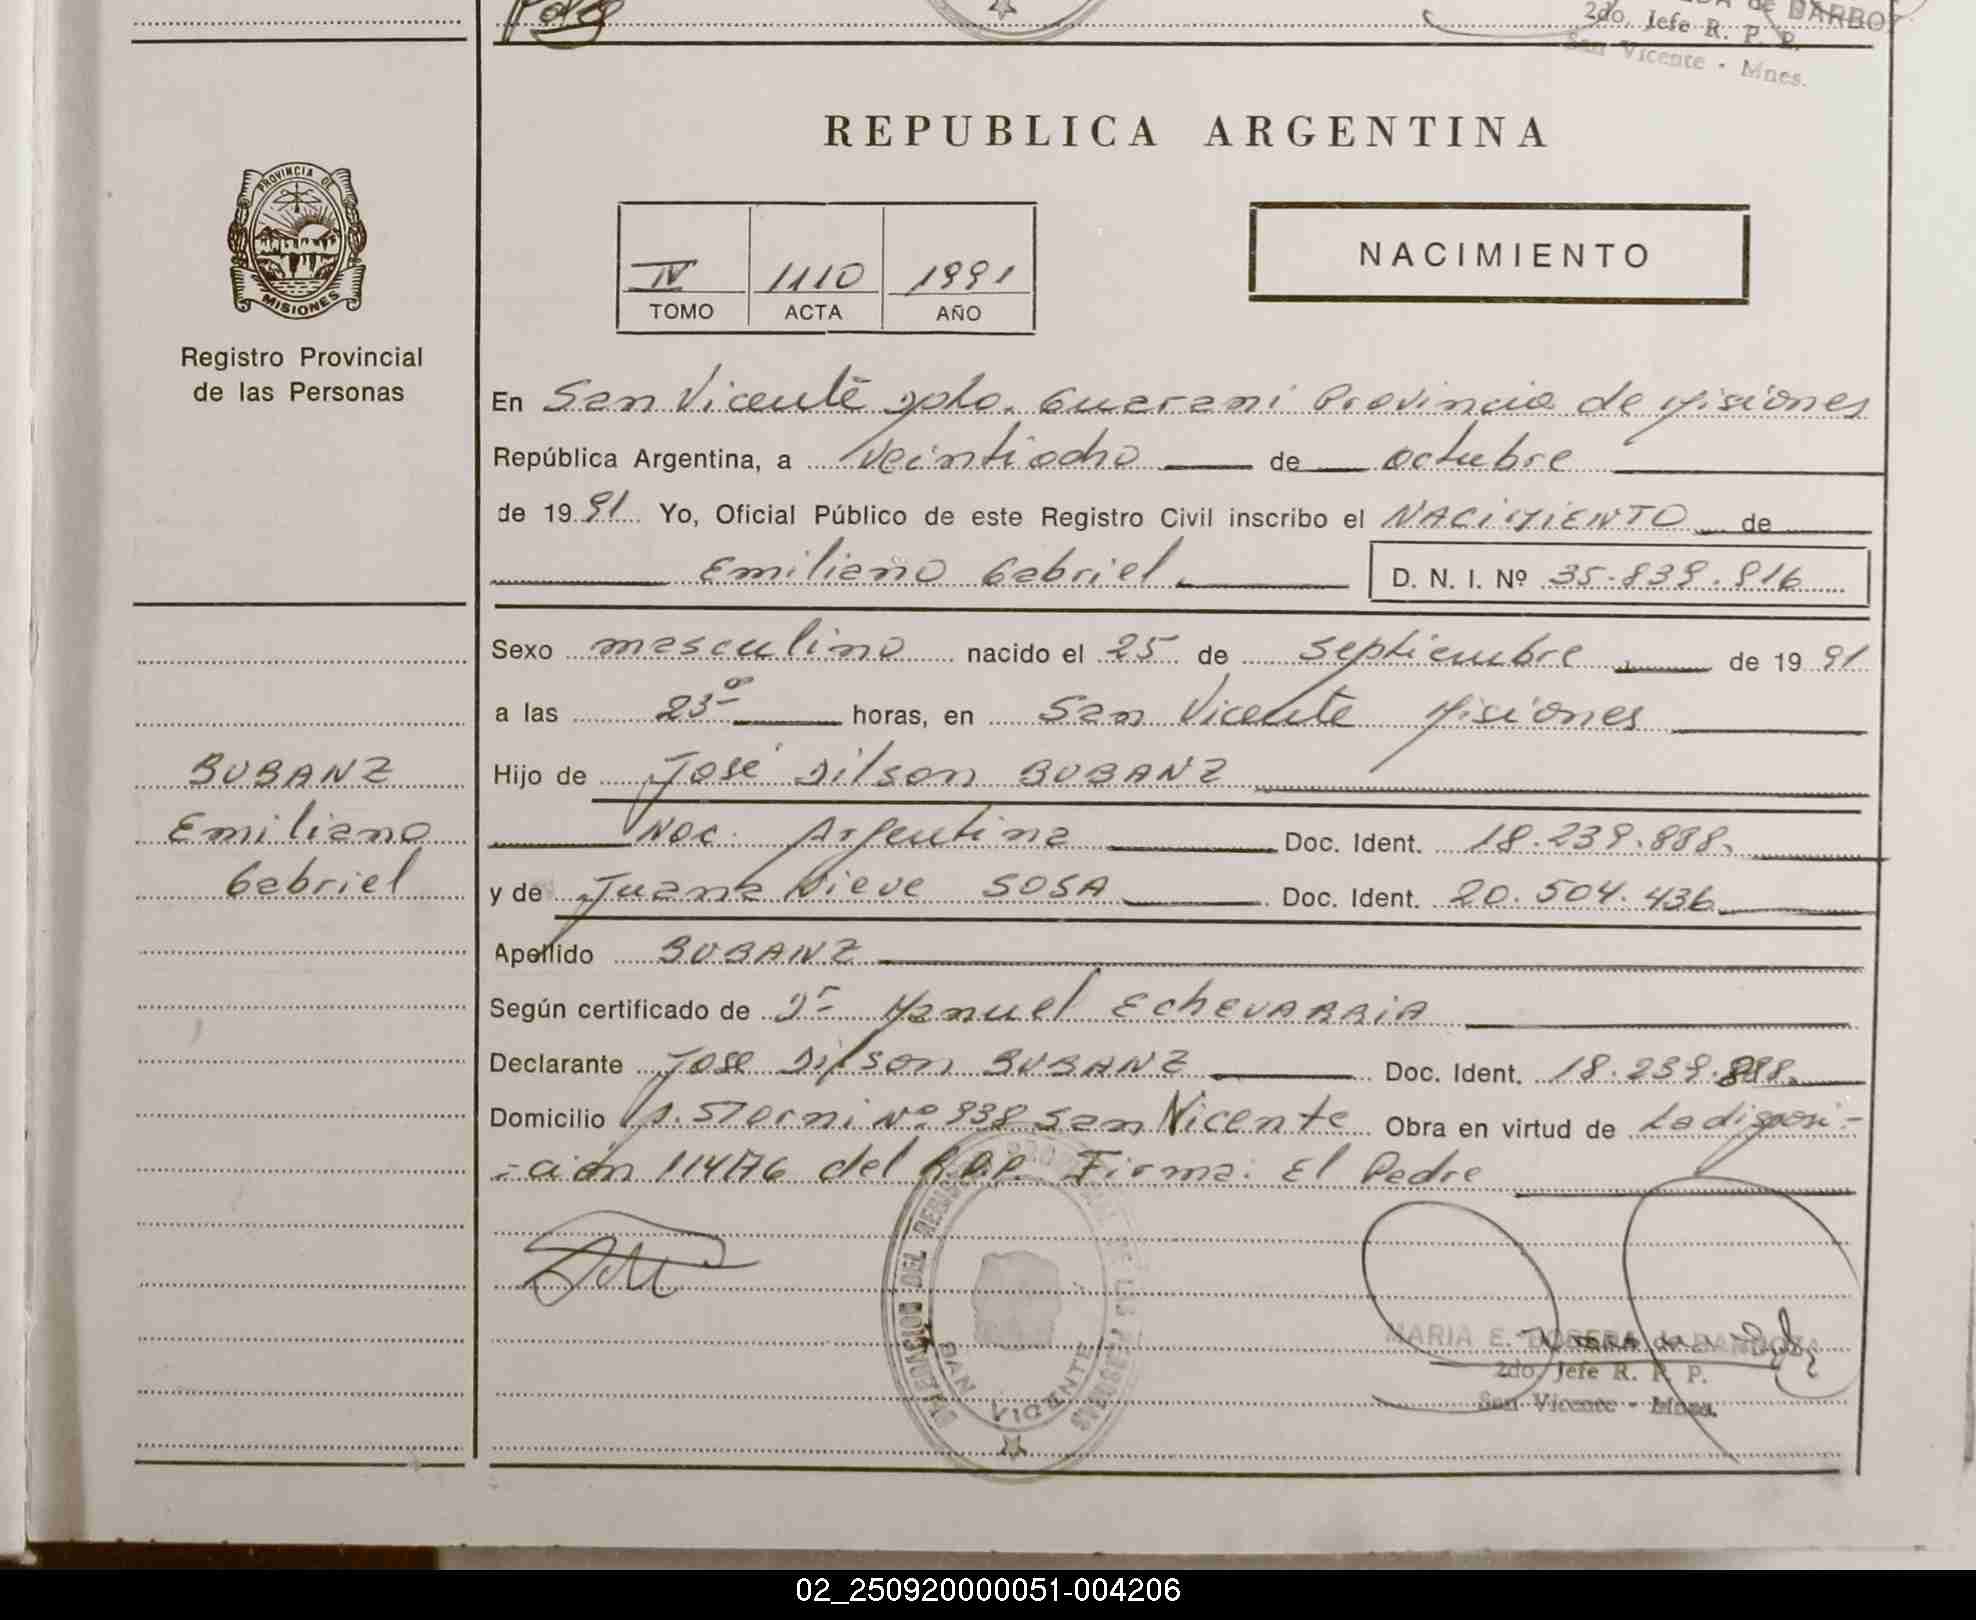 2do. Jefe R. P. P.
San Vicente - Mnes.
REPUBLICA ARGENTINA
PROVINCIA DE
MISIONES
Registro Provincial
de las Personas
IV 1110 1991
TOMO ACTA AÑO
NACIMIENTO
En San Vicente Dpto. Guarani Provincia de Misiones
República Argentina, a Veintiocho de octubre
de 1991 Yo, Oficial Público de este Registro Civil inscribo el NACIMIENTO de
Emiliano Gabriel
D. N. I. Nº 35.839.916
Sexo masculino nacido el 25 de septiembre de 1991
a las 23º horas, en San Vicente Misiones
Hijo de José Dilson BUBANZ
Nac. Argentina Doc. Ident. 18.239.888.
y de Juana Nieve SOSA Doc. Ident. 20.504.436
Apellido BUBANZ
Según certificado de Dr Manuel EchEVARRiA
Declarante José Dilson BUBANZ Doc. Ident. 18.239.888.
Domicilio A. Storni Nº 938 San Vicente Obra en virtud de La disposi-
-ción 114/76 del R.P.P. Firma: El Padre
BUBANZ
Emiliano
Gabriel
SAN VICENTE
MARIA E. de BARBOZA
2do. Jefe R. P. P.
San Vicente - Mnes.
02_250920000051-004206